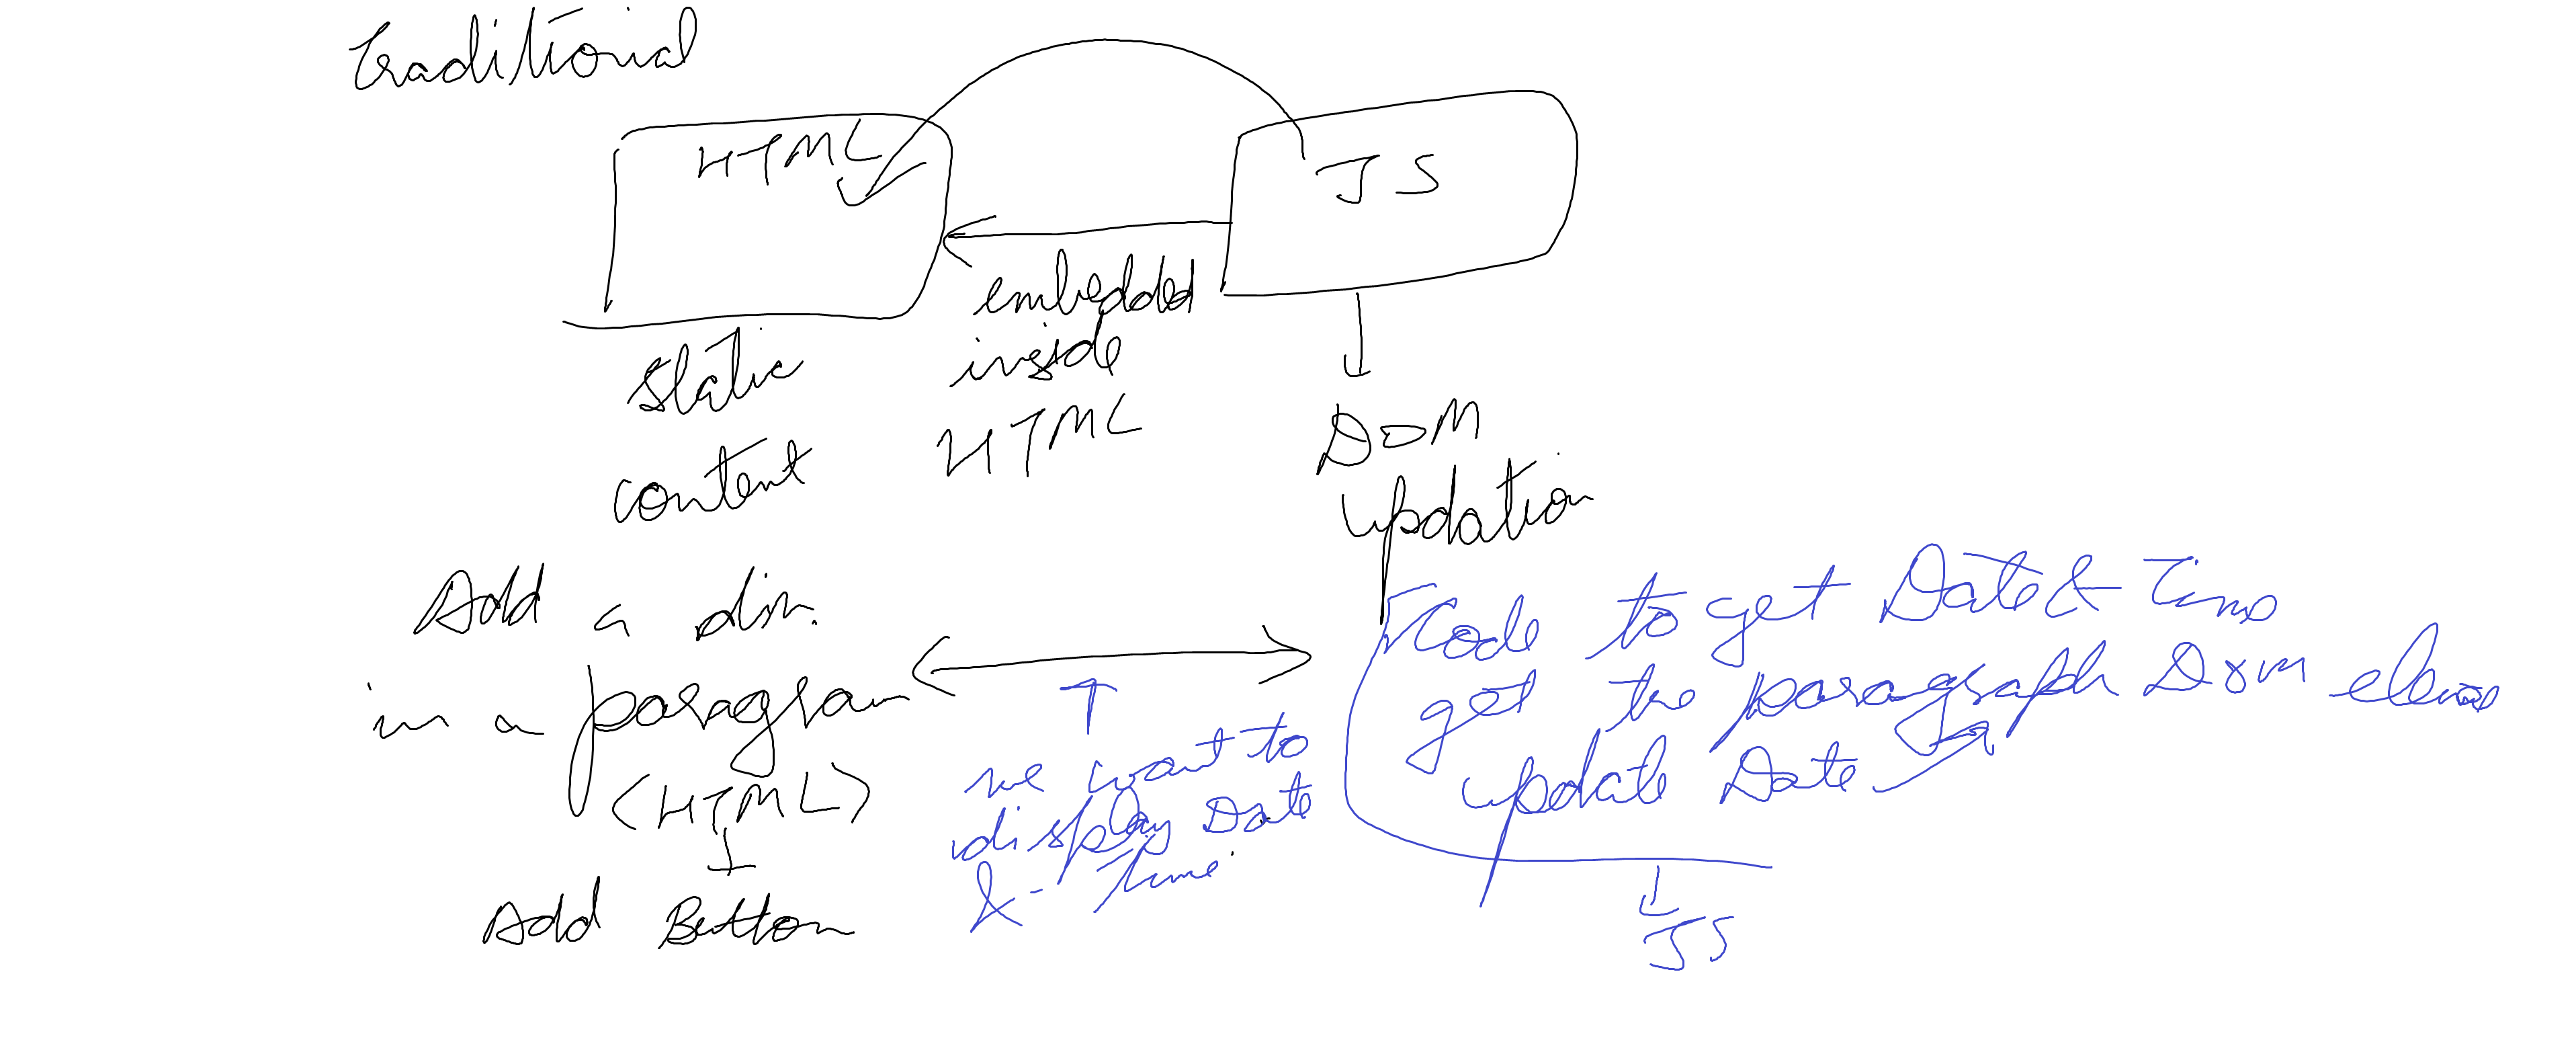 Traditional
HTML
JS
embedded
inside
HTML
static
content
DOM
updation
Add a div.
in a paragra
<HTML>
Add Button
we want to
display Date
& Time
Code to get Date & Time
get the paragraph DOM
update Date
JS